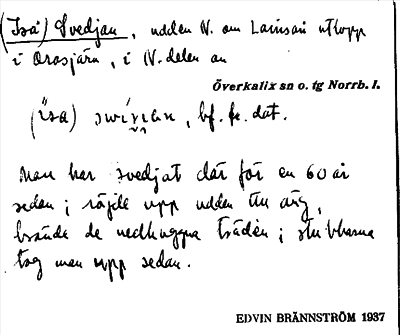 (Iså) Svedjan, udden N. om Lainsåns utlopp
i Orasjärv, i N. delen av
Överkalix sn o. tg Norrb. l.
(isa) bf. fe. dat.
Man har svedjat där för en 60 år
sedan; röjde upp udden till äng,
brände de nedhuggna träden; stubbarna
tog man upp sedan.
EDVIN BRÄNNSTRÖM 1937